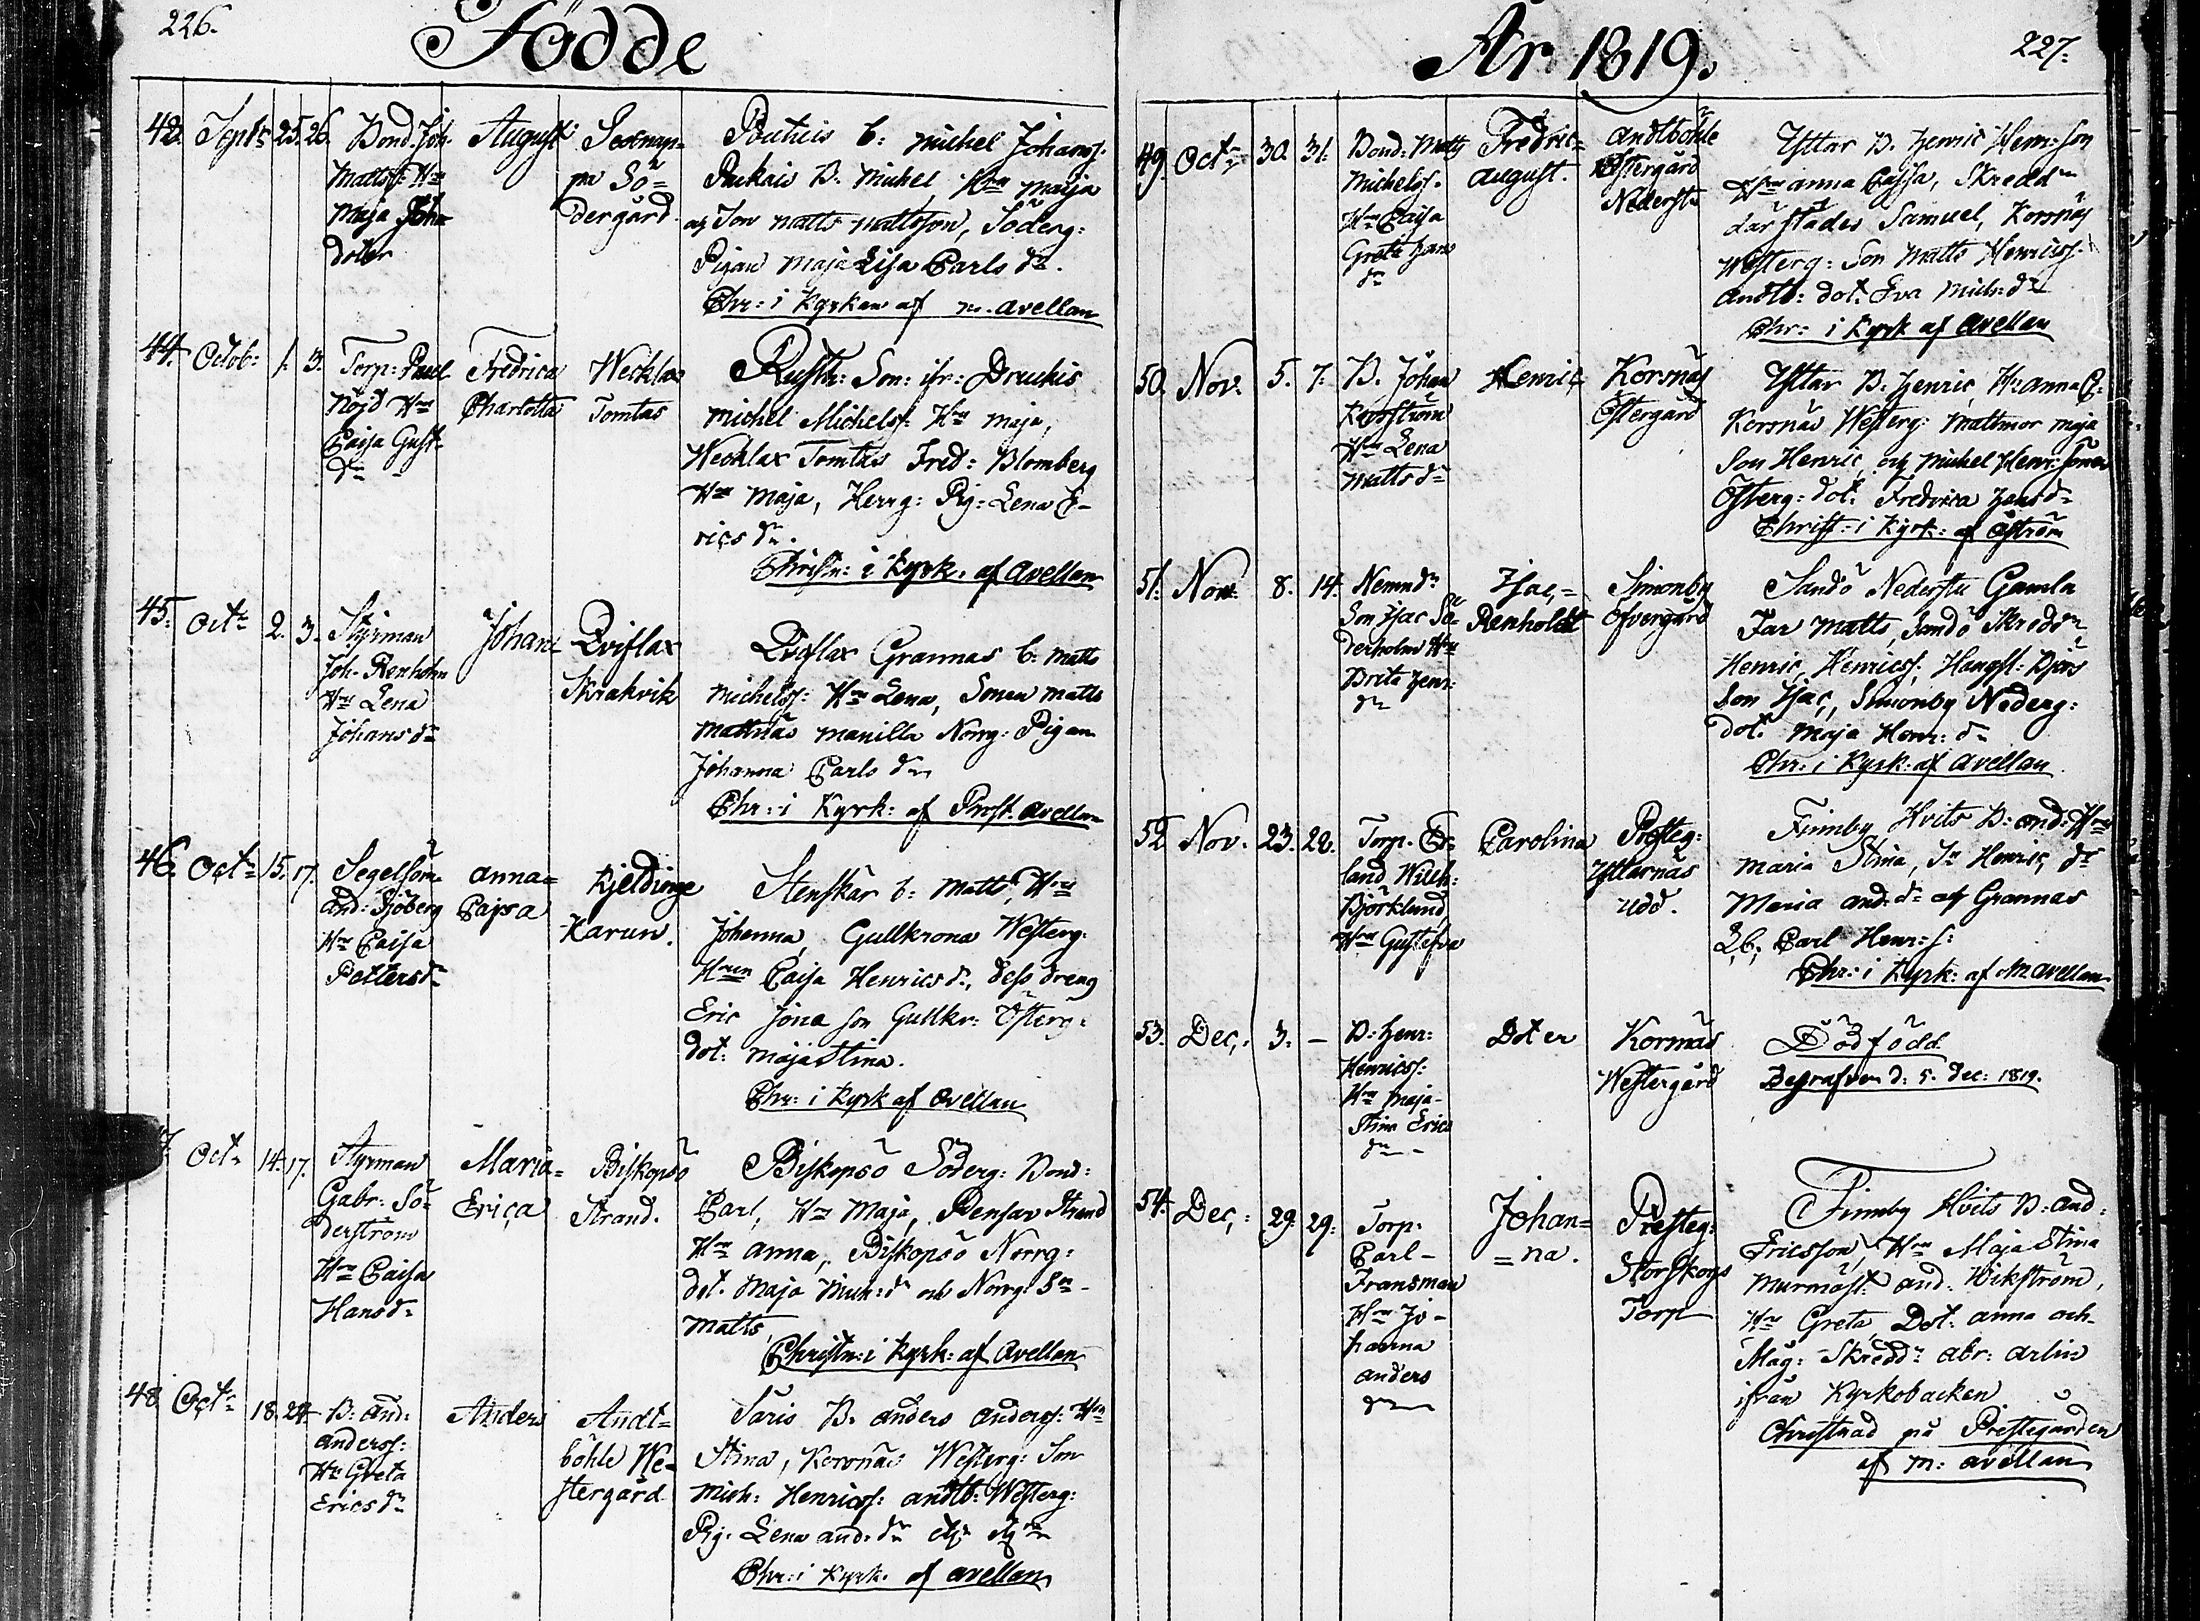 226.
Födde
42. Septr 25. 26. Bond. Joh. August Sexmyn=
Mattss: Hu
Maja Joha
doter
pa Sö=
dergård.
b: Michel Johanss.
B: Michel, Hru Maija
Son Matts Mattsson, Söderg:
Pigan Maja Lisa Carls dr.
Chr: i Kyrkan af m. Avellan
44. Octob: 1. 3. Torp: Paul
Nöjd Hru
Caisa Gust.
dr
Fredrica
Charlotta
Wechlax
Tomtas
Rusth: Son: ifr: Druckis
Michel Michelss: Hru Maja,
Wechlax Tomtas Fred: Blomberg
Hru Maja, Herrg: Pig: Lena E-
rics dr.
Christn: i Kyrk. af Avellan
45. Octr 2. 3. Styrman
Joh. Renholm
Hru Lena
Johans dr
Johan
Qviflax
Skrakvik
Qviflax Grannas b. Matts
Michelss: Hru Lena, Sonen Matts
Mattsäs Manilla Norrg: Pigan
Johanna Carls dr
Chr: i Kyrk: af Prost. Avellan
46. Octr 15. 17. Segelsöm.
And: Sjöberg
Hru Caisa
Petters dr
Anna=
Cajsa
Kjeldinge
Karun.
Stenskär b: Matts, Hru
Johanna, Gullkrona Westerg.
Hrun Caisa Henrics dr, dess dreng
Eric Jona son Gullkr: Österg:
dot: Maja Stina.
Chr: i Kyrk af Avellan
7. Octr 14. 17. Styrman
Gabr: Sö=
derström
Hru Caisa
Hans dr
Maria=
Erica
Biskopsö
Strand.
Biskopsö Söderg: Bond:
Carl, Hru Maja, Strand
Hru Anna, Biskopsö Norrg:
dot. Maja Mich: dr och Norrg: Sn
Matts
Christn: i Kyrk: af Avellan
48. Octr 18. 24. B: And:
Anderss:
Hu Greta
Erics dr
Anders
Andt=
böhle We=
stergård
Saris B. Anders Anderss: Hru
Stina, Korsnäs Westerg: Son
Mich: Henricss: Andtb: Westerg:
Pig: Lena And: dr
Chr: i Kyrk. af Avellan
År 1819.
227.
49. Octr 30. 31. Bond: Matts
Michelss.
Hru Caisa
Greta Hans
dr
Fredric=
August.
Andtböhle
Östergård
Nedersta
Yttar B. Henric Henr: son
Hru Anna Cajsa, Skreddr
där städes Samuel, Korsnäs
Westerg: Son Matts Henricss:
Andtb: dot. Eva Mich: dr
Chr: i Kyrk af Avellan
50. Nov. 5. 7. B. Johan
Korsström
Hru Lena
Matts dr
Henric
Korsnäs
Östergård
Yttar B. Henric, Hr: Anna C:
Korsnäs Westerg: Mattmor Maja
Son Henric och Michel Henr: söner
Österg: dot: Fredrica Hans dr
Christ: i Kyrk: af Öström
51. Nov. 8. 14. Nemndr
Son Isac Sö=
derholm Hru
Brita Henr:
dr
Isac,=
Renholdt
Simonby
Öfvergård
Sandö Nedersta Gamla
Far Matts, Sandö Skreddr
Henric, Henricss. Son Isac, Simonby Nederg:
dot: Maja Henr: dr
Chr: i Kyrk: af Avellan
52. Nov. 23. 28. Torp. Er=
land Wilh:
Björklund
Hru Gustefva
Carolina
Presteg:
Yttarnäs
udd.
Finnby Hvits B: And: Hru
Maria Stina, Sn Henric, dr
Maria And: dr af Grannas
Carl Henr: s:
Chr: i Kyrk: af M. Avellan
53. Dec,. 3. - B: Henr:
Henricss:
Hru Maja-
Stina Erics
dr -
Doter
Korsnäs
Westergård
Dödfödd
Begrafven d: 5. Dec: 1819.
54. Dec,: 29. 29. Torp.
Carl-
Fransman
Hru Jo-
hanna
Anders
dr
Johan=
=na.
Presteg:
Storskogs
Torp
Finnby Hvits B: And:
Ericsson, Hru Maja Stina
Murmäst. And. Wikström,
Hru Greta, Dot. Anna och
Måg: Skreddr Abr: Arlin
ifrån Kyrkobacken
Christnad på Prestegården
af M: Avellan